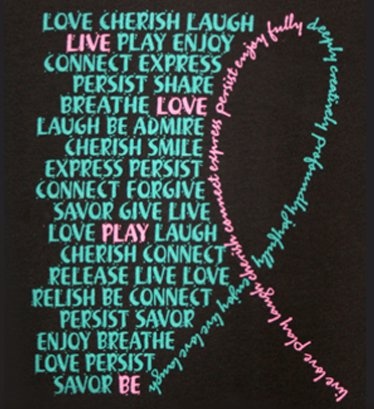 LOVE CHERISH LAUGH
LIVE PLAY ENJOY
CONNECT EXPRESS
PERSIST SHARE
BREATHE LOVE
LAUGH BE ADMIRE
CHERISH SMILE
EXPRESS PERSIST
CONNECT FORGIVE
SAVOR GIVE LIVE
LOVE PLAY LAUGH
CHERISH CONNECT
RELEASE LIVE LOVE
RELISH BE CONNECT
PERSIST SAVOR
ENJOY BREATHE
LOVE PERSIST
SAVOR BE
live love play laugh cherish connect express persist enjoy fully
deeply creatively profoundly joyfully enjoy live love laugh